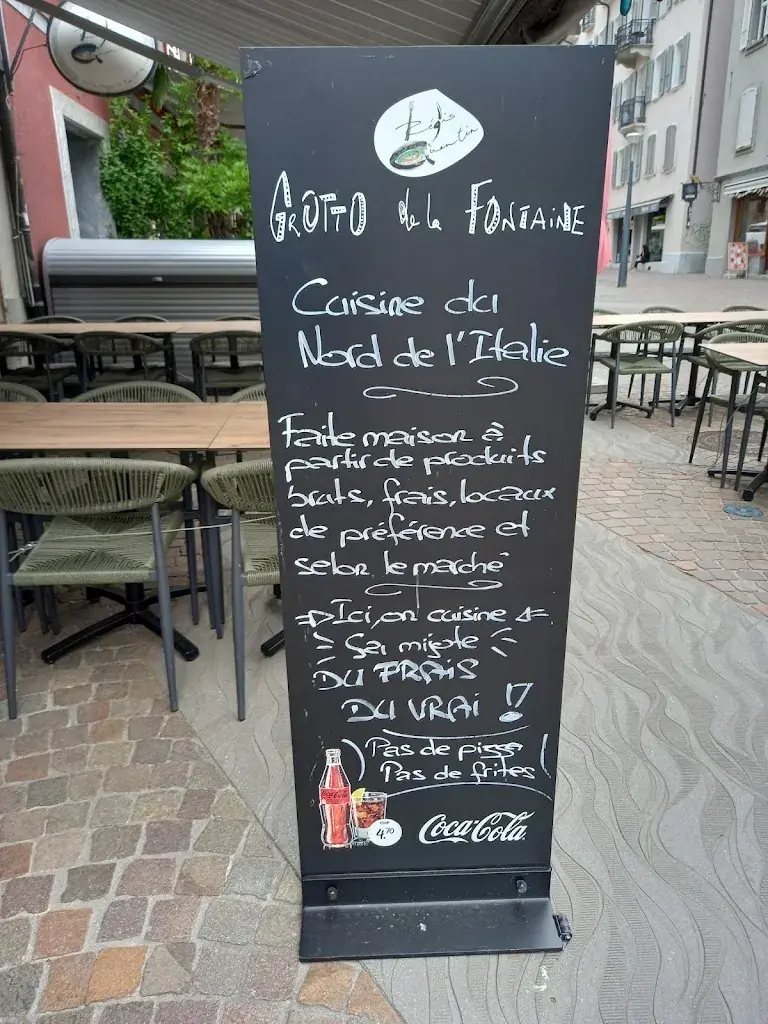 Régis
Quentin
GROTTO de la FONTAINE
Cuisine du
Nord de l'Italie
Faite maison à
partir de produits
bruts, frais, locaux
de préférence et
selon le marché
Ici, on cuisine
Ça mijote
DU FRAIS
DU VRAI !
Pas de pizza
Pas de frites
Coca-Cola
CHF
4.70
Coca-Cola